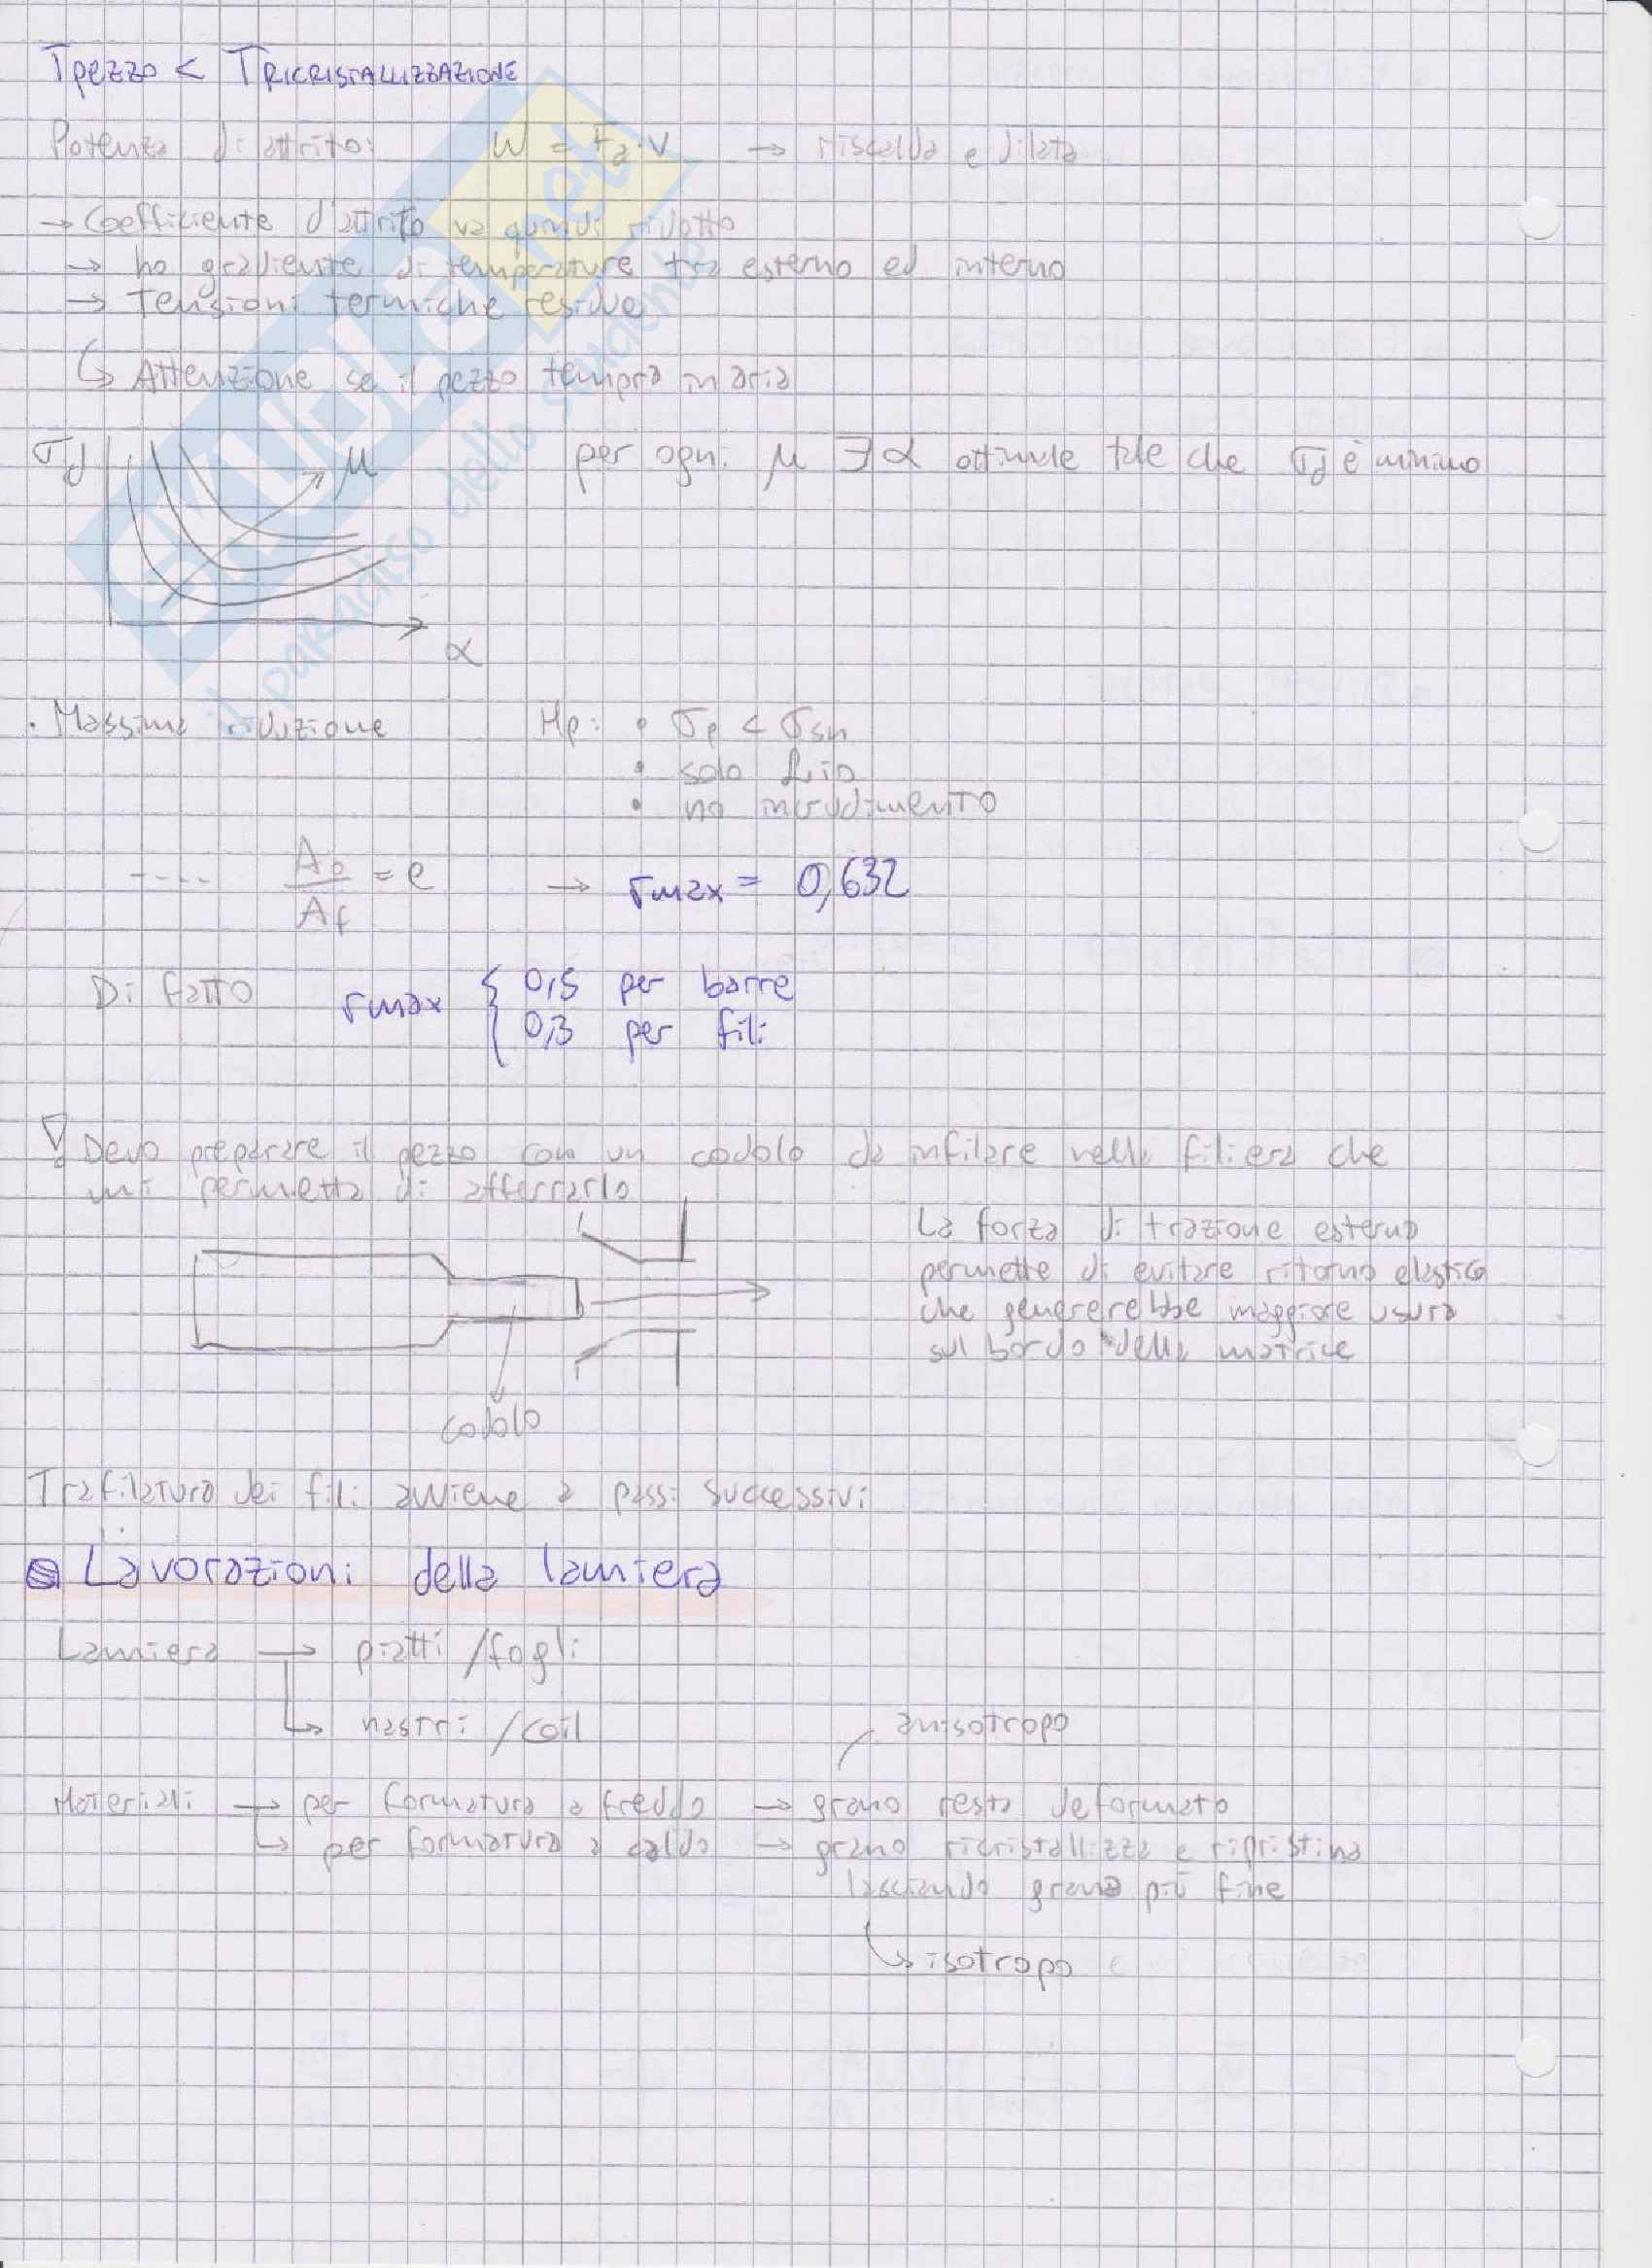 Tpezzo < TRICRISTALLIZZAZIONE
Potenza di attrito: W = Fa·v → riscalda e dilata
→ Coefficiente d'attrito va quindi ridotto
→ ho gradiente di temperature tra esterno ed interno
→ Tensioni termiche residue
↳ Attenzione se il pezzo tempra in aria
σd μ per ogni μ ∃ α ottimale tale che σd è minimo
α
• Massima riduzione Hp: • σp < σsn
• solo Lid
• no incrudimento
---- A0/Af = e → rmax = 0,632
Di fatto rmax { 0,5 per barre
0,3 per fili
! Devo preparare il pezzo con un codolo da infilare nella filiera che
mi permetta di afferrarlo
La forza di trazione esterna
permette di evitare ritorno elastico
che genererebbe maggiore usura
sul bordo della matrice
codolo
Trafilatura dei fili avviene a passi successivi
Lavorazioni della lamiera
Lamiera → piatti /fogli
↳ nastri /coil
anisotropo
Materiali → per formatura a freddo → grano resta deformato
↳ per formatura a caldo → grano ricristallizza e ripristina
lasciando grano più fine
↳ isotropo
SKUOLA.net
il paradiso dello studente